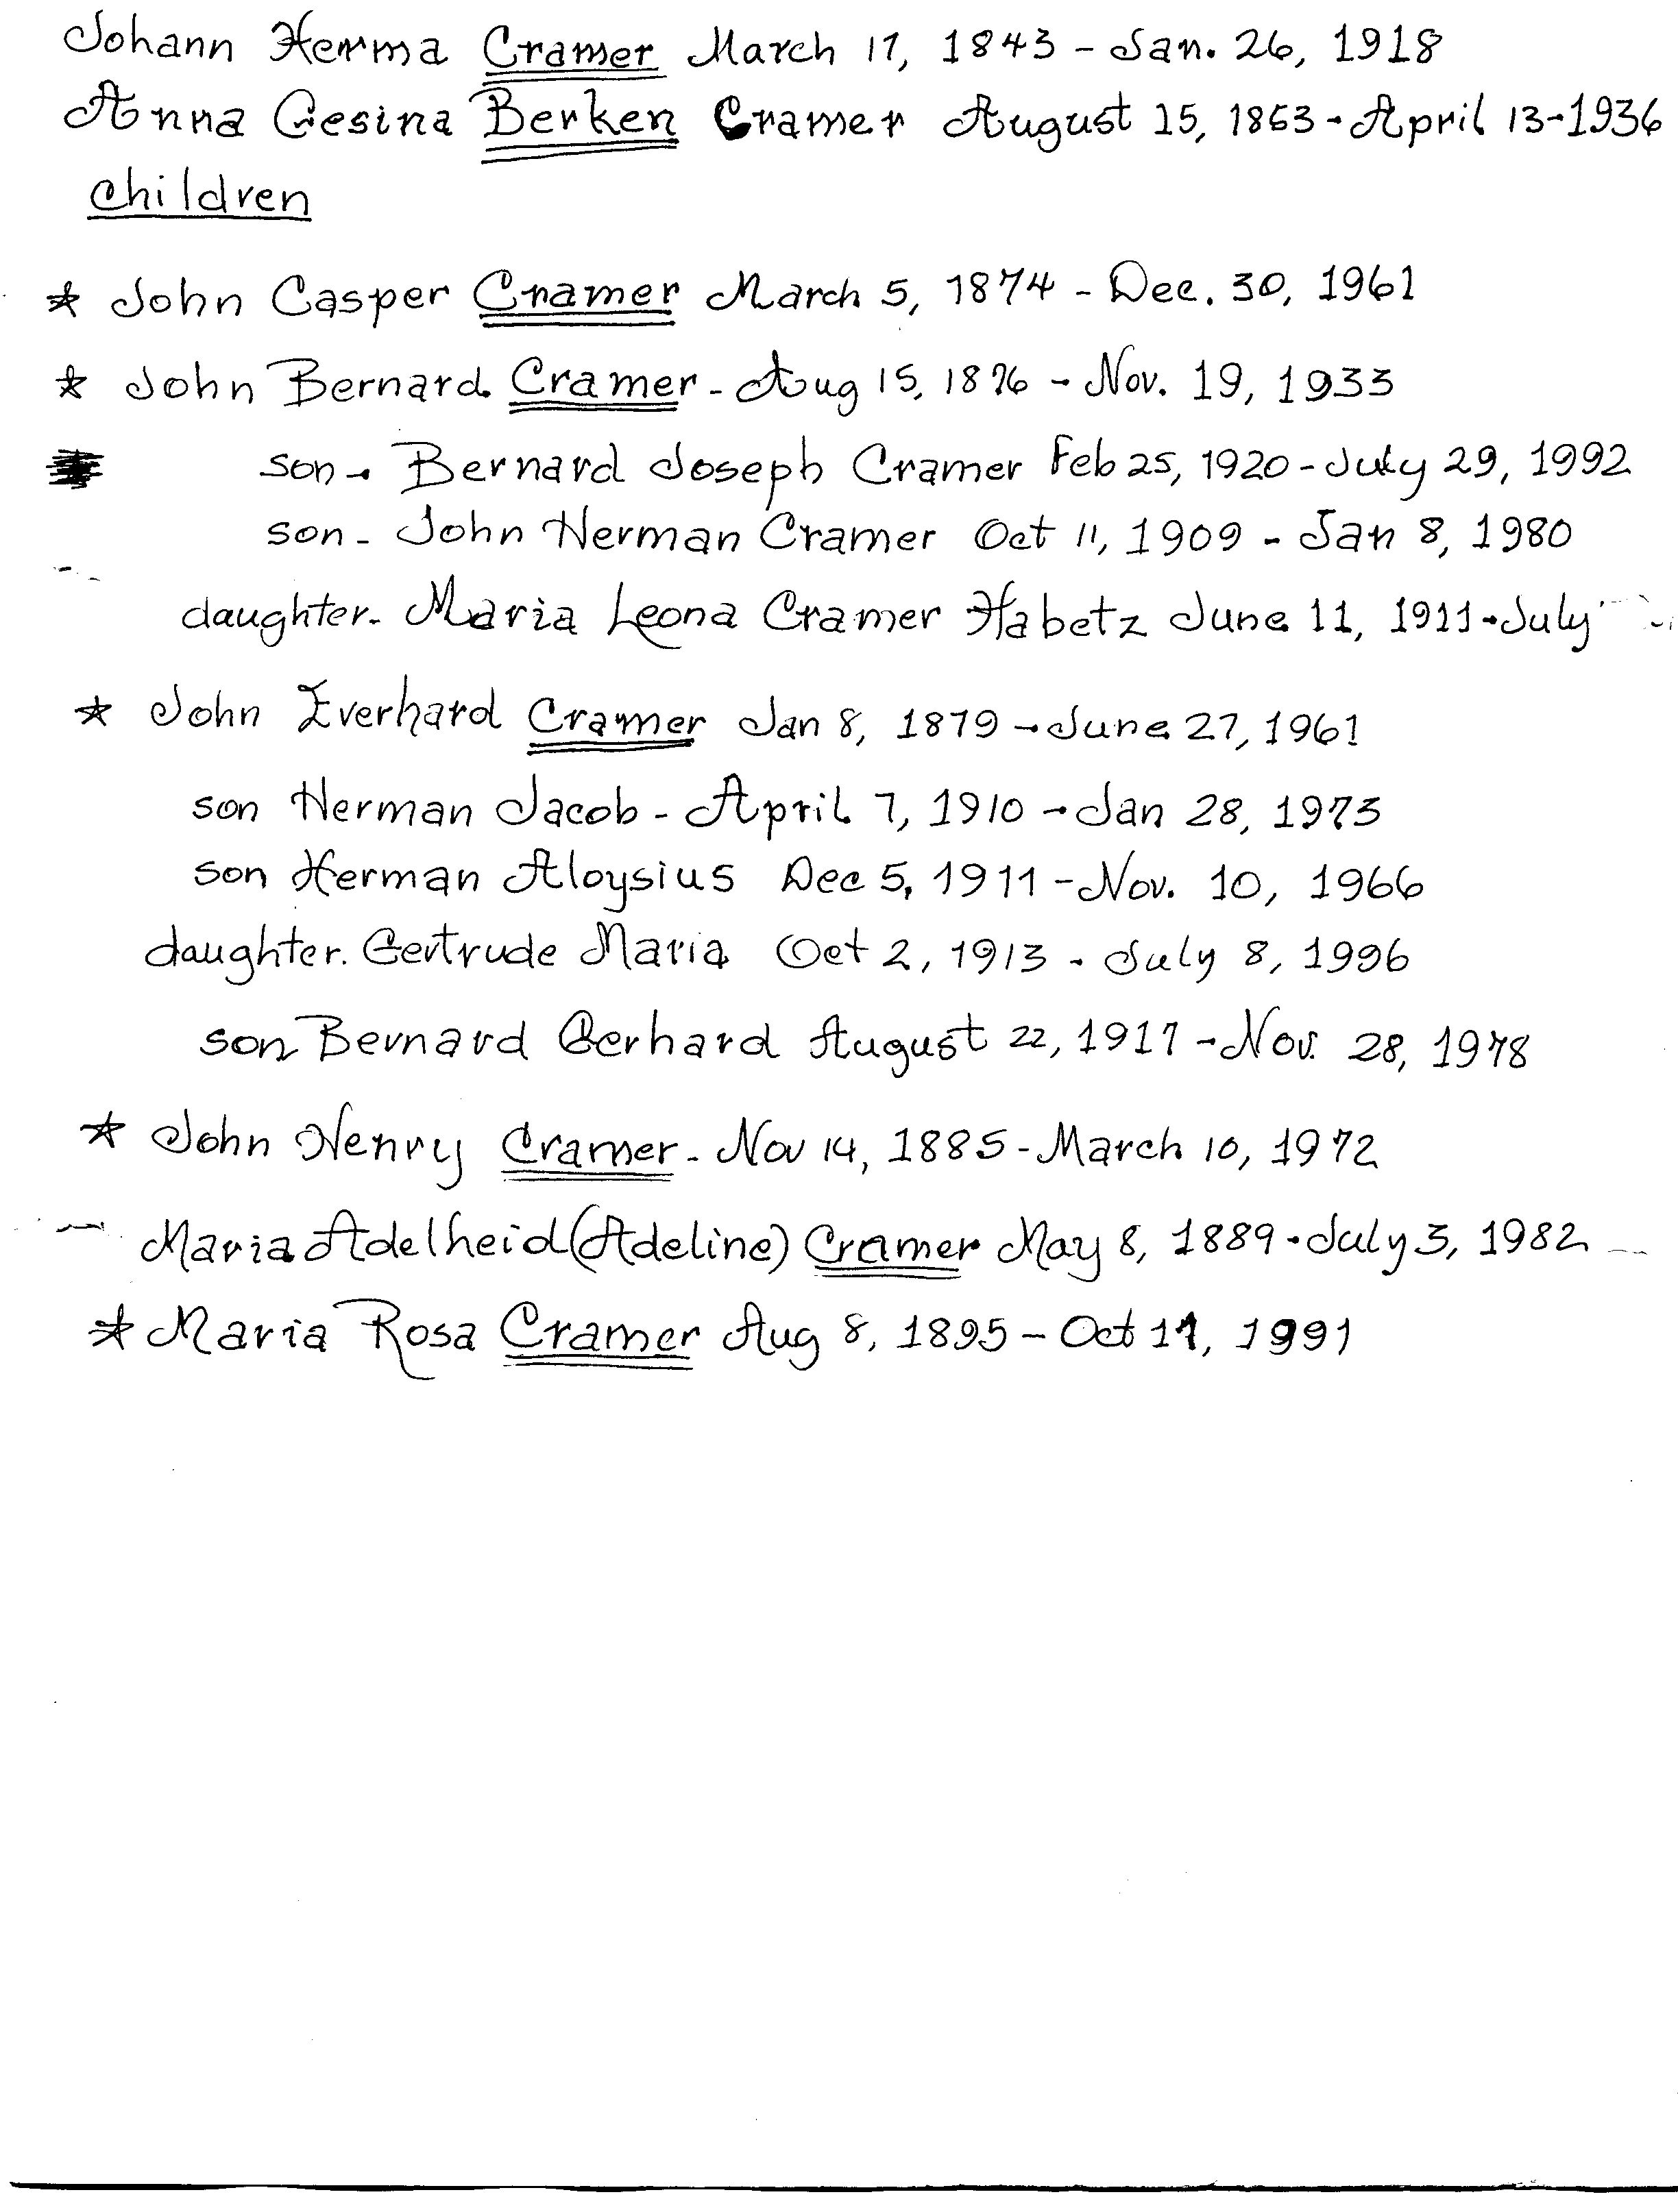 Johann Herma Cramer March 17, 1843 - Jan. 26, 1918
Anna Gesina Berken Cramer August 15, 1853 - April 13-1936
Children
* John Casper Cramer March 5, 1874 - Dec. 30, 1961
* John Bernard Cramer - Aug 15, 1876 - Nov. 19, 1933
son - Bernard Joseph Cramer Feb 25, 1920 - July 29, 1992
son - John Herman Cramer Oct 11, 1909 - Jan 8, 1980
daughter - Maria Leona Cramer Habetz June 11, 1911 - July
* John Everhard Cramer Jan 8, 1879 - June 27, 1961
son Herman Jacob - April 7, 1910 - Jan 28, 1973
son Herman Aloysius Dec 5, 1911 - Nov. 10, 1966
daughter. Gertrude Maria Oct 2, 1913 - July 8, 1996
son Bernard Gerhard August 22, 1917 - Nov. 28, 1978
* John Henry Cramer - Nov 14, 1885 - March 10, 1972
Maria Adelheid (Adeline) Cramer May 8, 1889 - July 3, 1982
* Maria Rosa Cramer Aug 8, 1895 - Oct 11, 1991